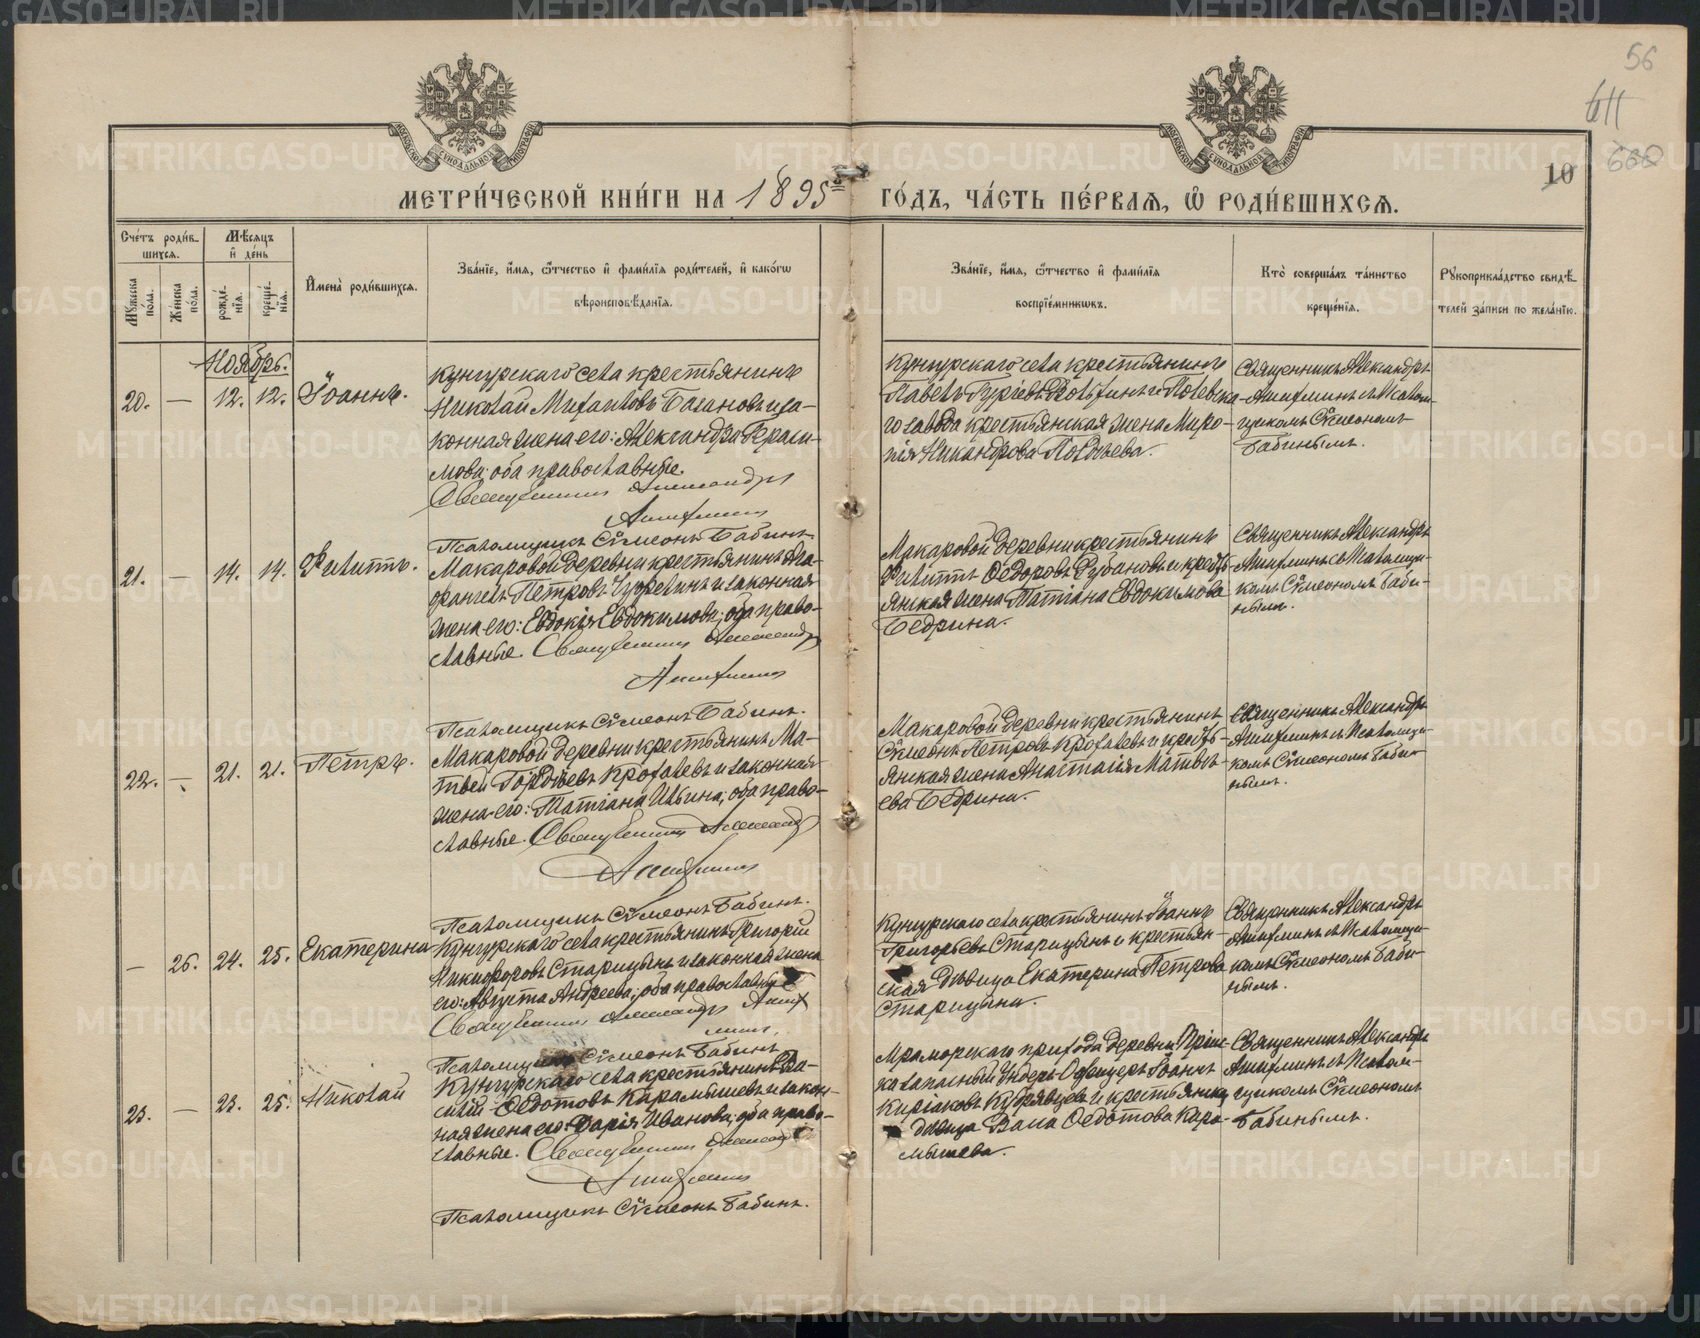 56
611
660
10
МЕТРИ́ЧЕСКОЙ КНИ́ГИ НА 1895 ГО́ДЪ, ЧА́СТЬ ПЕ́РВАЯ, Ѡ҆ РОДИ́ВШИХСЯ.
Сче́тъ роди́в-
шихся.
Мѣ́сяцъ
и҆ де́нь
Му́жеска по́ла.
Же́нска по́ла.
рожде́-
нїя.
креще́-
нїя.
И҆мена̀ роди́вшихся.
Зва́нїе, и҆́мя, ѻ҆́тчество и҆ фами́лїя роди́телей, и҆ како́гѡ
вѣроисповѣ́данїя.
Зва́нїе, и҆́мя, ѻ҆́тчество и҆ фами́лїя
воспрїе́мникѡвъ.
Кто̀ соверша́лъ та́инство
креще́нїя.
Рꙋкоприкла́дство свидѣ́-
телей за́писи по жела́нїю.
Ноябрь.
20. — 12. 12. Іоаннъ.
Кунгурскаго села крестьянинъ
Николай Михаиловъ Балановъ и за-
конная жена его: Александра Гераси-
мова; оба православные.
Священникъ Александръ
Анифимовъ
Псаломщикъ Сѵмеонъ Бабинъ.
Кунгурскаго села крестьянинъ
Павелъ Гурьевъ и Полевска-
го завода крестьянская жена Миро-
пія Никандрова
Священникъ Александръ
съ Псалом-
щикомъ Сѵмеономъ
Бабинымъ.
21. — 14. 14. Филиппъ.
Макаровой деревни крестьянинъ Ла-
Петровъ и законная
жена его: Евдокія Евдокимова; оба право-
славные. Священникъ Александръ
Псаломщикъ Сѵмеонъ Бабинъ.
Макаровой деревни крестьянинъ
Филиппъ Ѳедоровъ и кресть-
янская жена Татіана Евдокимова
Бедрина.
Священникъ Александръ
съ Псаломщи-
комъ Сѵмеономъ Баби-
нымъ.
22. — 21. 21. Петръ.
Макаровой деревни крестьянинъ Ма-
твей Гордѣевъ Крохалевъ и законная
жена его: Татіана Ильина; оба право-
славные. Священникъ Александръ
Псаломщикъ Сѵмеонъ Бабинъ.
Макаровой деревни крестьянинъ
Сѵмеонъ Петровъ Крохалевъ и кресть-
янская жена Анастасія Матвѣ-
ева Бедрина.
Священникъ Александръ
съ Псаломщи-
комъ Сѵмеономъ Баби-
нымъ.
— 26. 24. 25. Екатерина
Кунгурскаго села крестьянинъ Григорій
Никифоровъ Старицынъ и законная жена
его: Августа Андреева; оба православные
Священникъ Александръ
Псаломщикъ Сѵмеонъ Бабинъ
Кунгурскаго села крестьянинъ Іоаннъ
Григорьевъ Старицынъ и крестьян-
ская дѣвица Екатерина Петрова
Старицына.
Священникъ Александръ
съ Псаломщи-
комъ Сѵмеономъ Баби-
нымъ.
23. — 23. 25. Николай
Кунгурскаго села крестьянинъ Ва-
силій Ѳедотовъ Карамышевъ и закон-
ная жена его: Дарія Иванова; оба право-
славные. Священникъ Александръ
Псаломщикъ Сѵмеонъ Бабинъ.
Мраморскаго прихода деревни
ка запасный Унderъ Офицеръ Іоаннъ
Киріаковъ Кудрявцевъ и крестьянка
дѣвица Ѳедотова Кара-
мышева.
Священникъ Александръ
съ Псалом-
щикомъ Сѵмеономъ
Бабинымъ.
METRIKI.GASO-URAL.RU